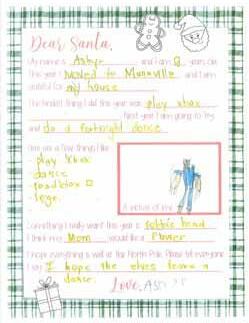 Dear Santa,
My name is and I am 8 years old.
This year I moved to and I am
grateful for my house
The kindest thing I did this year was play xbox
. Next year I am going to try
and do a fortnight dance
Here are a few things I like:
play Xbox
dance
lego.
A picture of me
Something I really want this year is
I think my Mom would like a Flower
I hope everything is well at the North Pole. Please tell everyone
I say I hope the elves learn a
dance.
Love,